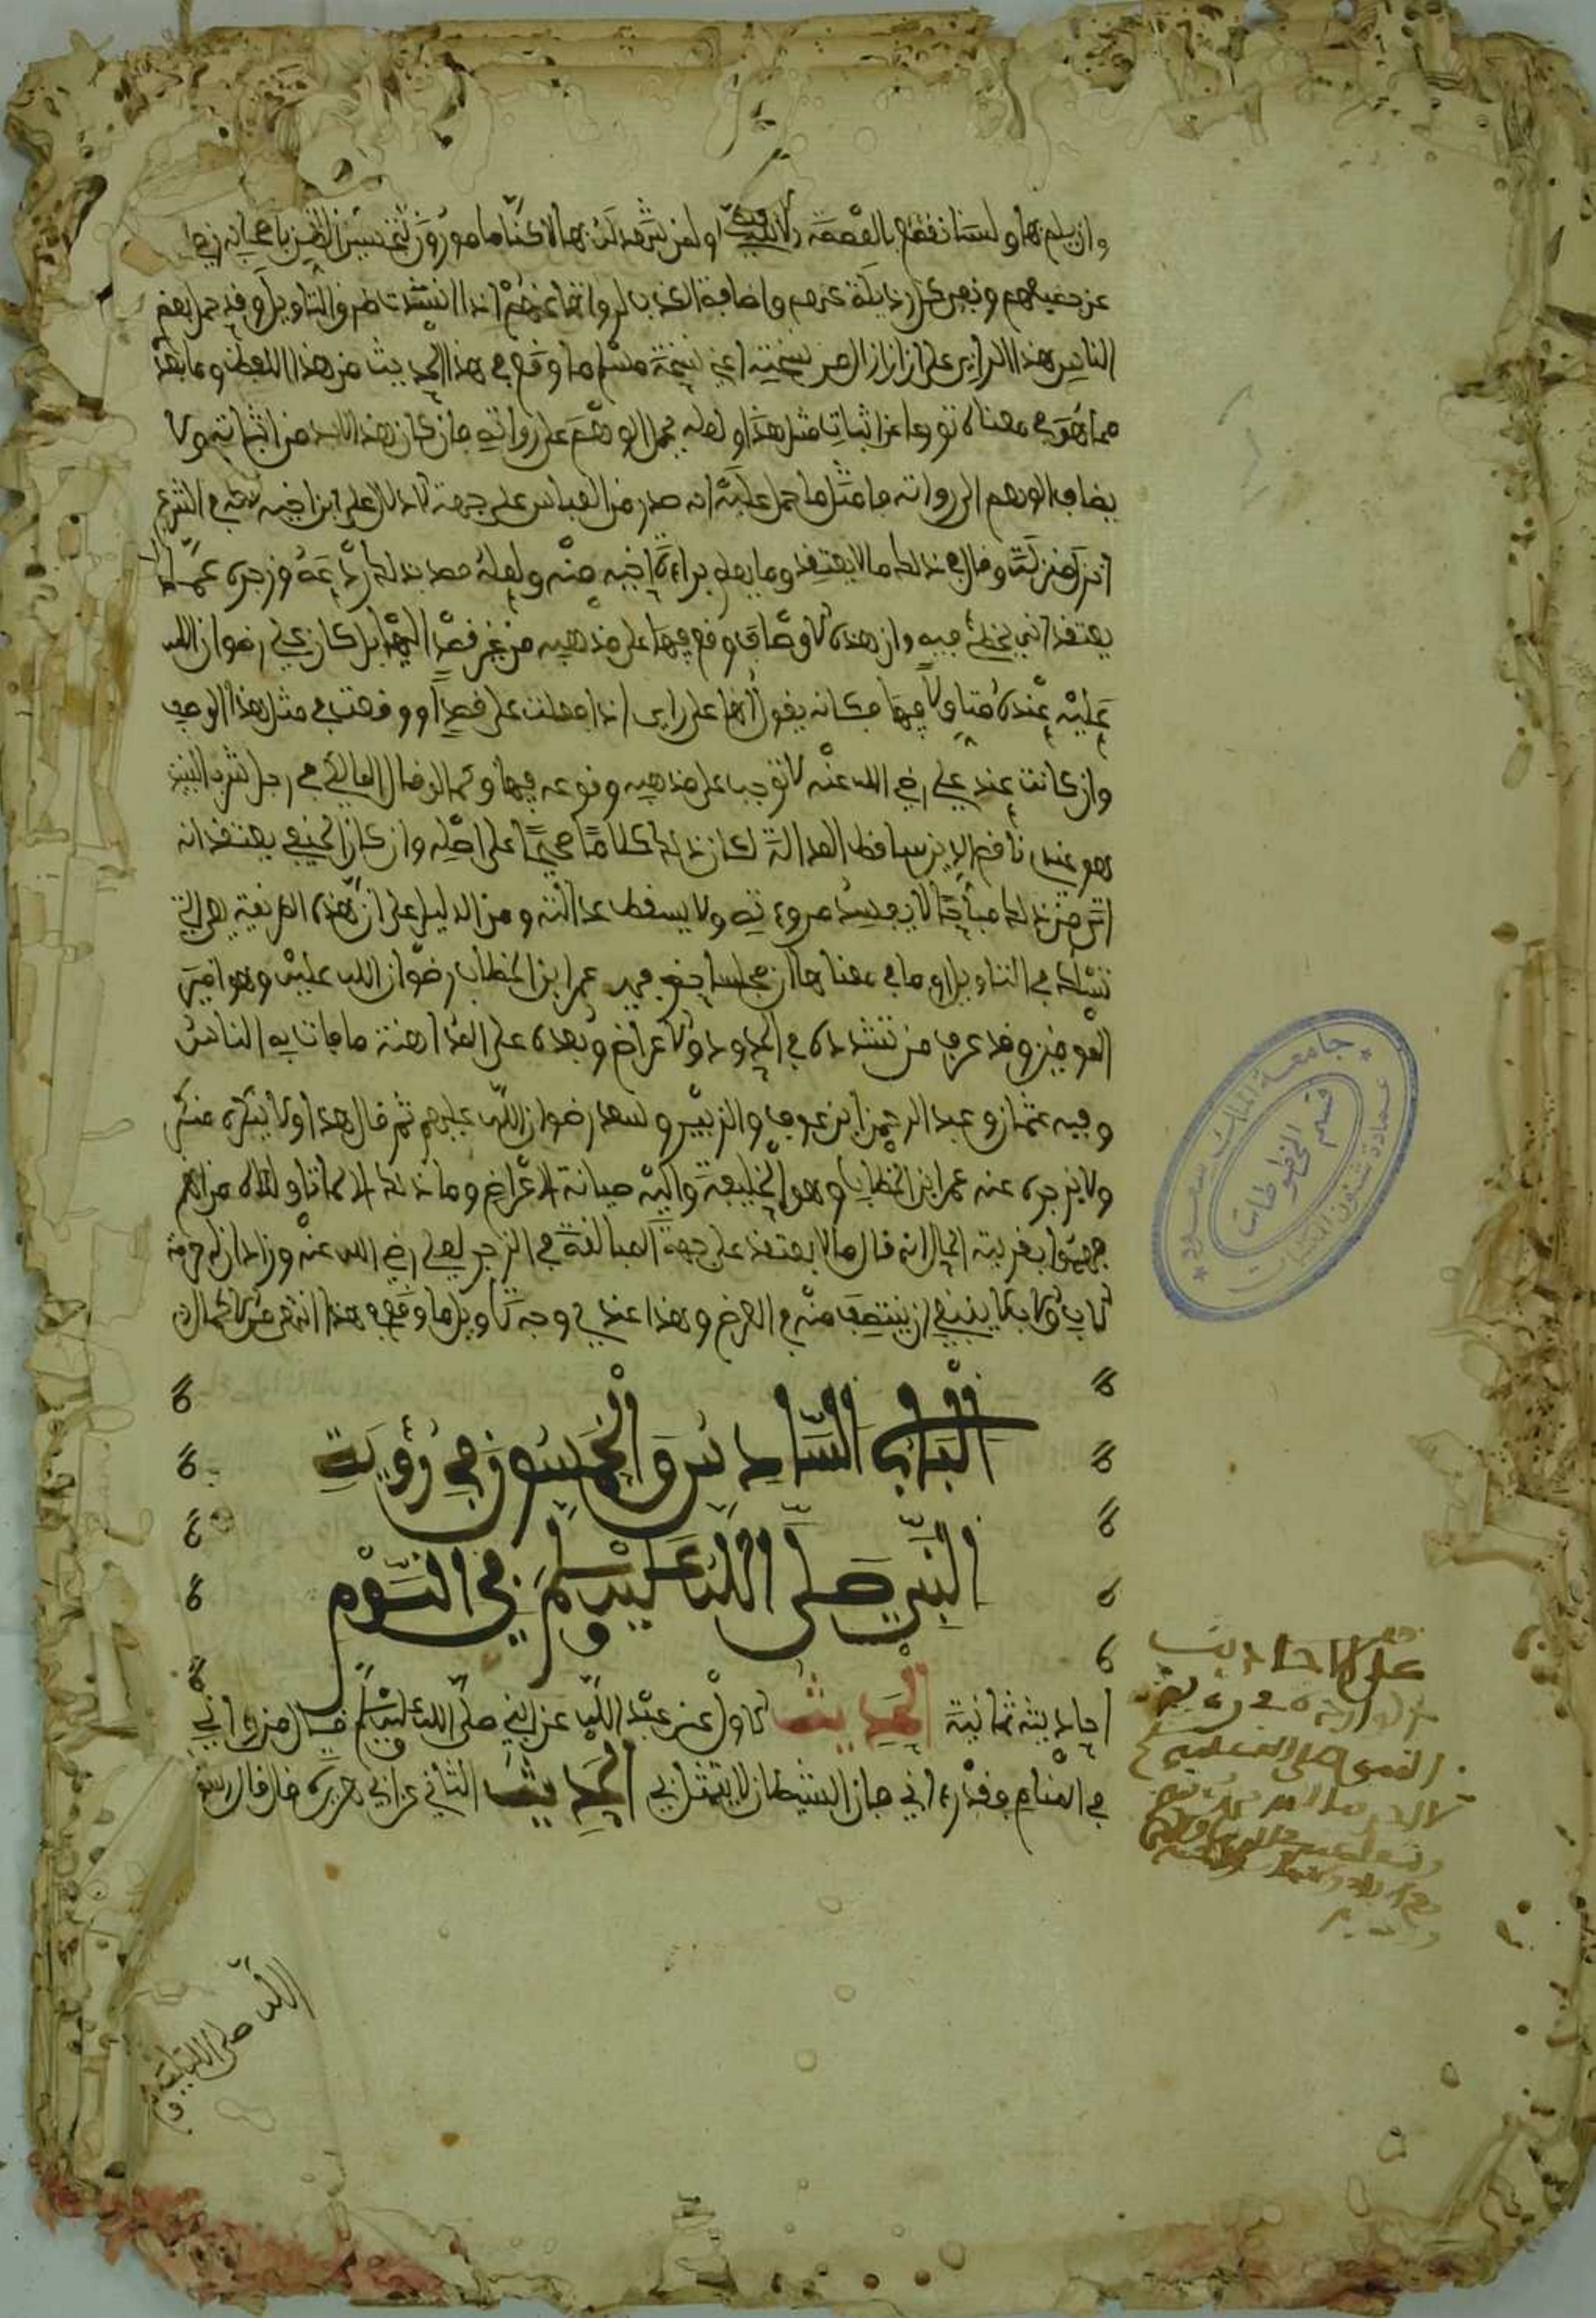 وان يلم بها ولسنا نقطع بالعصمة الا للنبي او لمن شهد له بها لاكنا مامورون بتحسين الظن بالصحابة رضي
عن جميعهم ونفي كل رذيلة عنهم واضافة الكذب لرواتها عنهم اذا انسدت طرق التاويل وقد حمل بعض
الناس هذا الراي على ان ازال من نسخته اعني نسخة مسلم ما وقع في هذا الحديث من هذا اللفظ وما بعد
مما هو في معناه تورعا عن اثبات مثل هذا او لعله يحمل الوهم على رواته فان كان هذا لابد من اثباته ولا
يضاف الوهم الى رواته فامثل ما حمل عليه انه صدر من العباس على جهة الادلال على ابن اخيه لانه في الشرع
انزل منزلته وقال في ذلك ما لا يعتقد وما يعلم براءة اخيه منه ولعله قصد بذلك ردعه وزجره عما
يعتقد انه يخطئ فيه وان هذه الاوصاف وقع فيها على مذهبه من غير قصد اليها بل كان علي رضوان الله
عليه عنده متاولا فيها فكانه يقول انها على رايي اذا فعلت على قصد او وقعت في مثل هذا الوصف
وان كانت عند علي رضي الله عنه لا توجب على مذهبه وقوعه فيها وكما لو قال المالكي في رجل شرب النبيذ
هو عندي ناقص الدين ساقط العدالة لكان ذلك كلاما صحيحا على اصله وان كان الحنفي يعتقد انه
اتى من ذلك مباحا لا يفسد مروءته ولا يسقط عدالته ومن الدليل على ان هذه الطريقة هي التي
تسلك في التاويل او ما في معناها ان مجلسا حضر فيه عمر ابن الخطاب رضوان الله عليه وهو امير
المومنين وقد عرف من تشدده في الحدود والاعراض وبعده على المداهنة ما فات به الناس
وفيه عثمان وعبد الرحمن ابن عوف والزبير وسعد رضوان الله عليهم ثم قال هذا ولا ينكره منكر
ولا يزجره عنه عمر ابن الخطاب وهو الخليفة واليه صيانة الاعراض وما ذلك الا كما تاولناه من انهم
فهموا بقرينة الحال انه قال ما لا يعتقد على جهة المبالغة في الزجر لعلي رضي الله عنه
لا ينبغي ان ينتصف منه في العرض وهذا عندي وجه تاويل ما وقع في هذا انتهى من الاكمال
الباب السادس والخمسون في رؤية
النبي صلى الله عليه وسلم في النوم
احاديثه ثمانية الحديث الاول عن عبد الله عن النبي صلى الله عليه وسلم قال من رءاني
في المنام فقد رءاني فان الشيطان لا يتمثل بي الحديث الثاني عن ابي هريرة قال قال رسول
الله صلى الله عليه و
على الاحاديث
صلى الله عليه
جامعة الملك سعود
عمادة شئون المكتبات
قسم المخطوطات